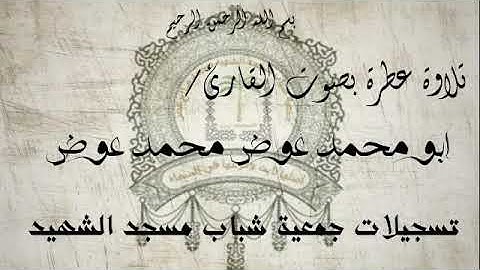 بسم الله الرحمن الرحيم
تلاوة عطرة بصوت القارئ/
ابو محمد عوض محمد عوض
تسجيلات جمعية شباب مسجد الشهيد